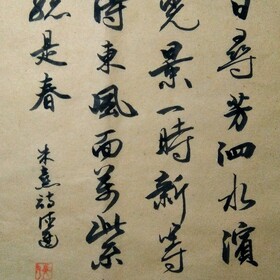 日尋芳泗水濱
光景一時新等
得東風面萬紫
總是春
朱熹詩